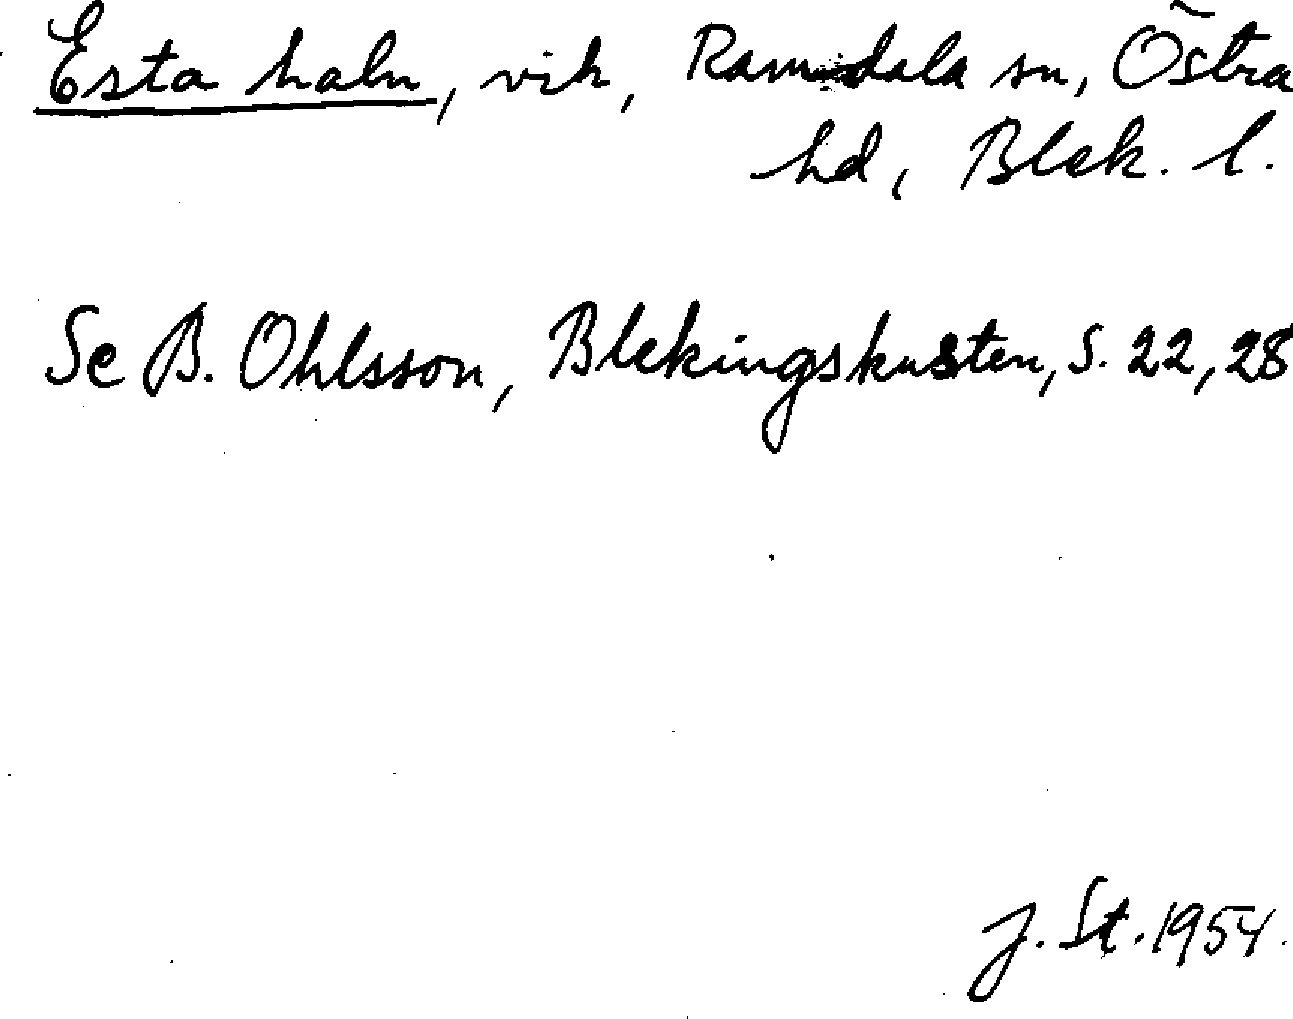 Esta haln, vik, Ramdala sn, Östra
hd, Blek. l.
Se B. Ohlsson, Blekingskusten, s. 22, 28
J. St. 1954.